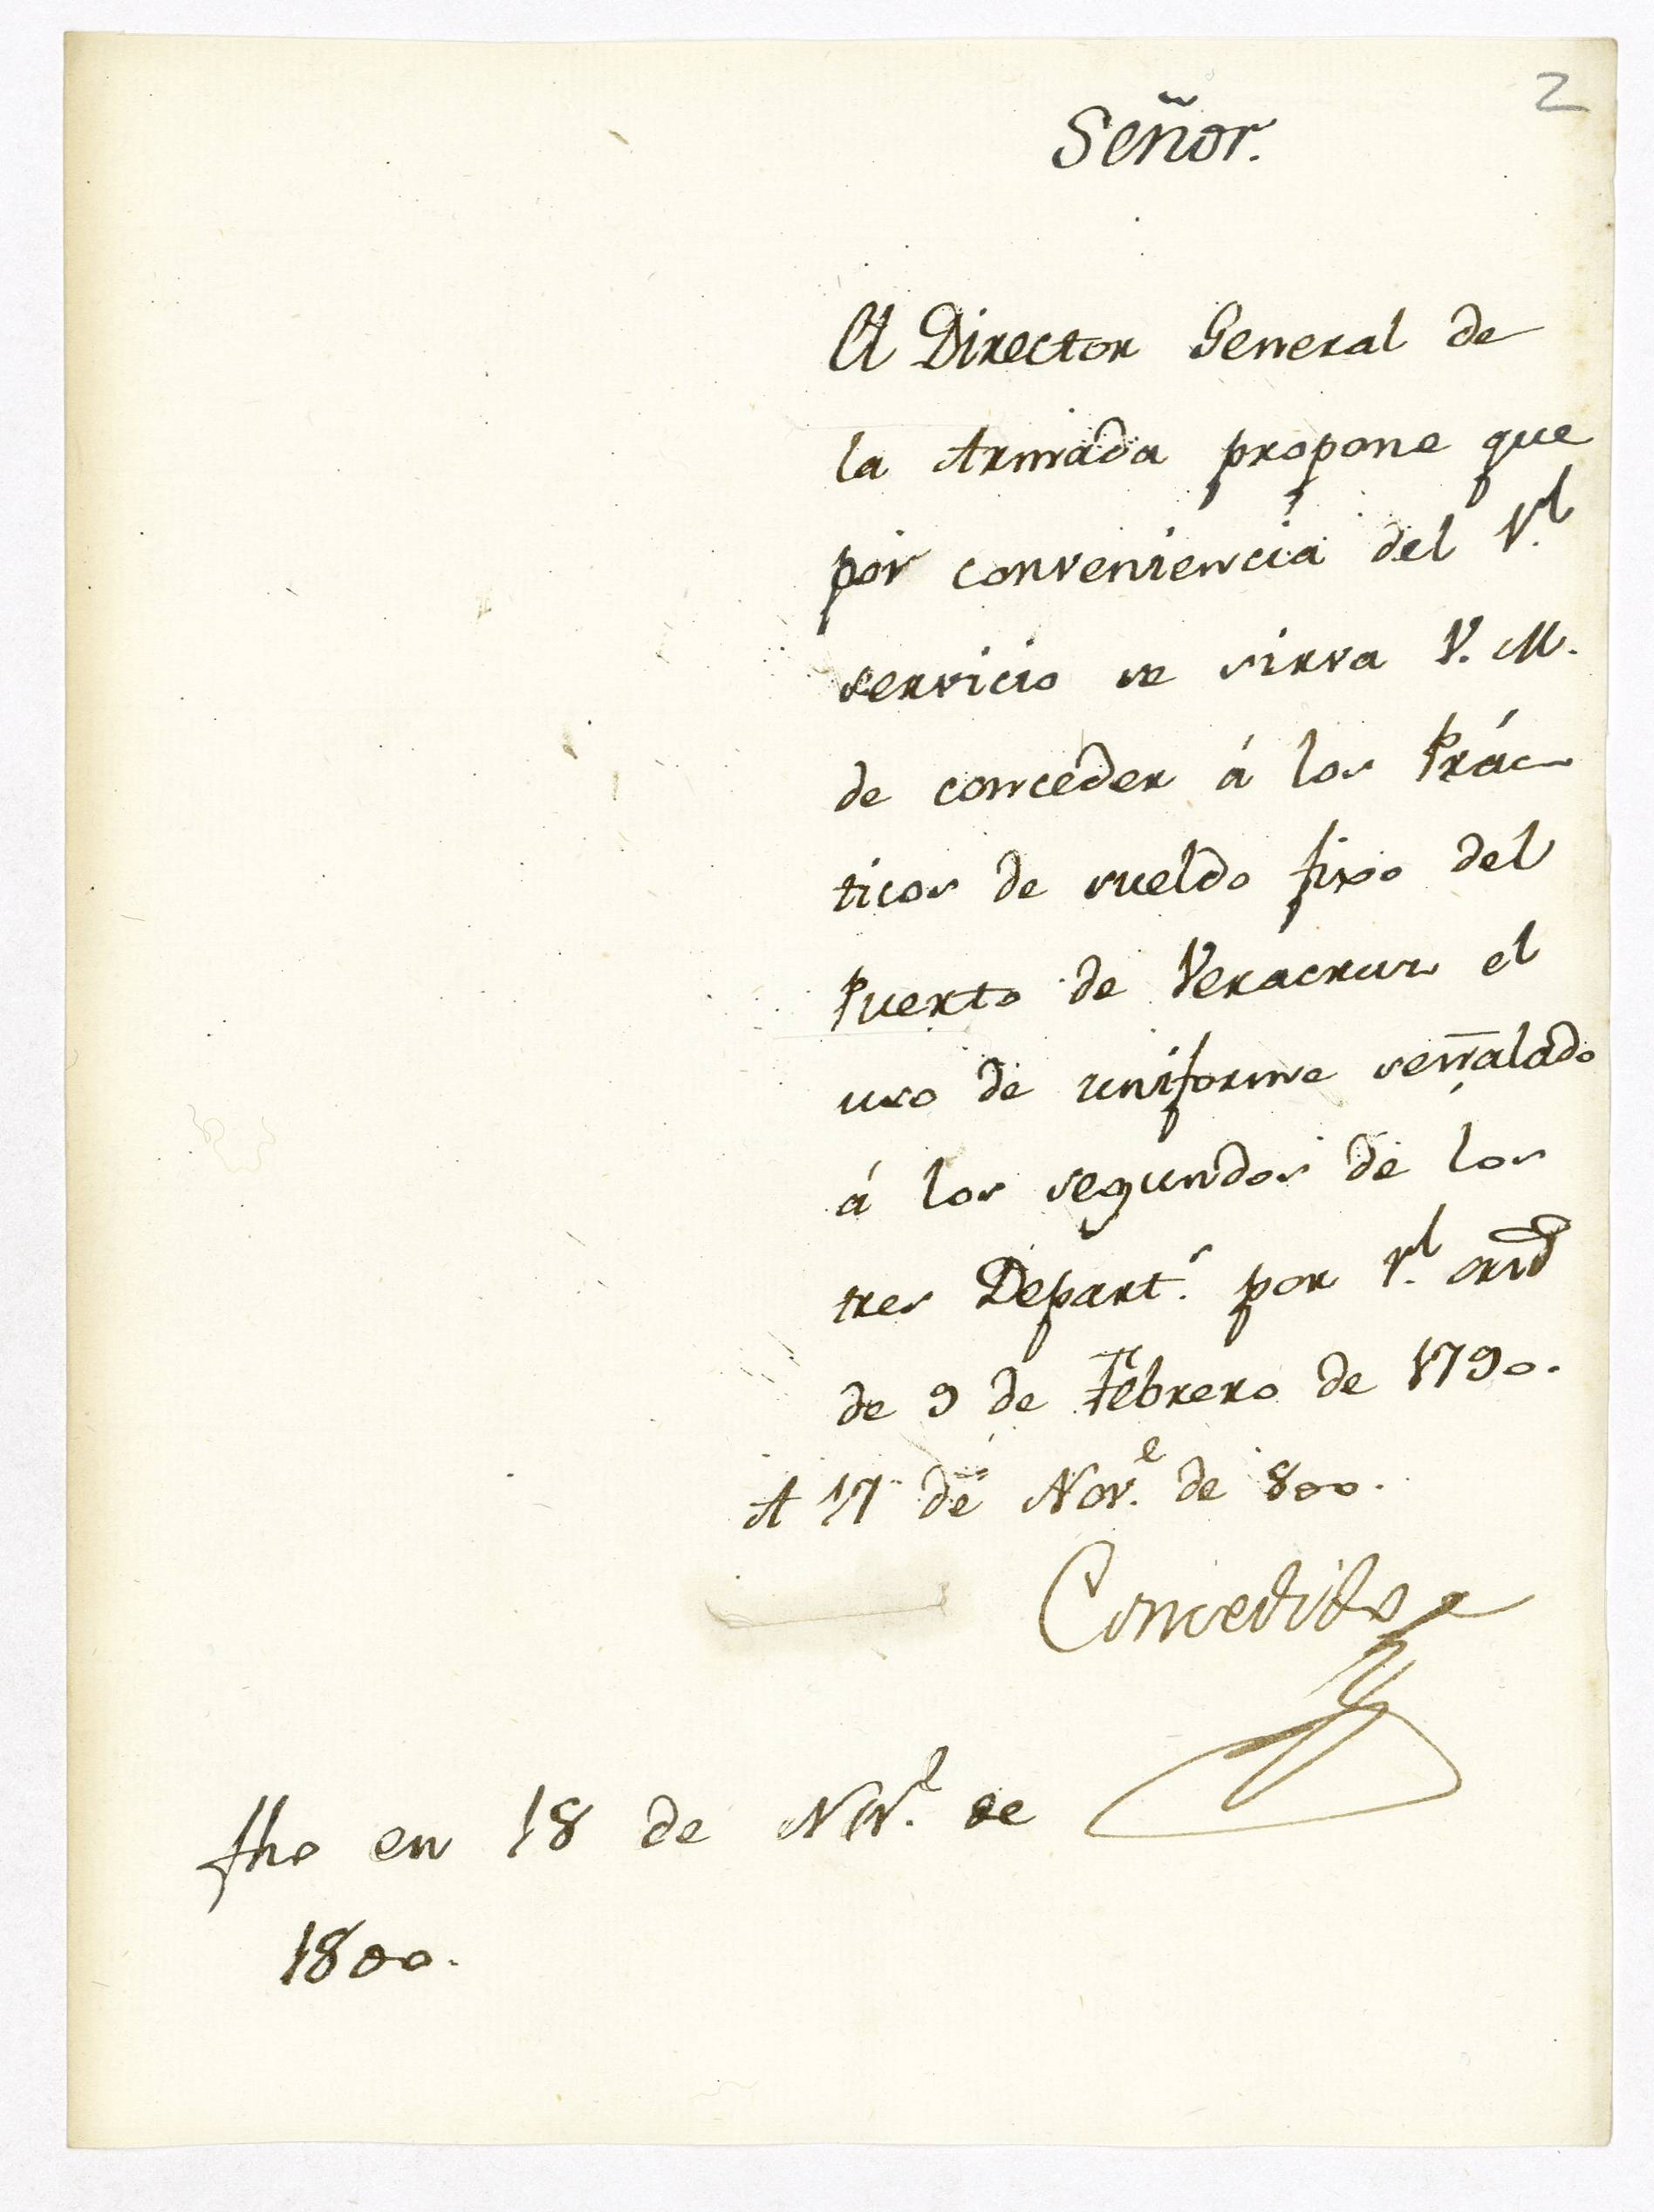 2
Señor.
El Director General de
la Armada propone que
por conveniencia del Rl.
servicio se sirva V. M.
de conceder á los Prác-
ticos de sueldo fixo del
Puerto de Veracruz el
uso de uniforme señalado
á los segundos de los
tres Depart.s por rl. ord
de 9 de Febrero de 1790.
A 17 de Nov.e de 800.
Concedido
fho en 18 de Nov.e de
1800.